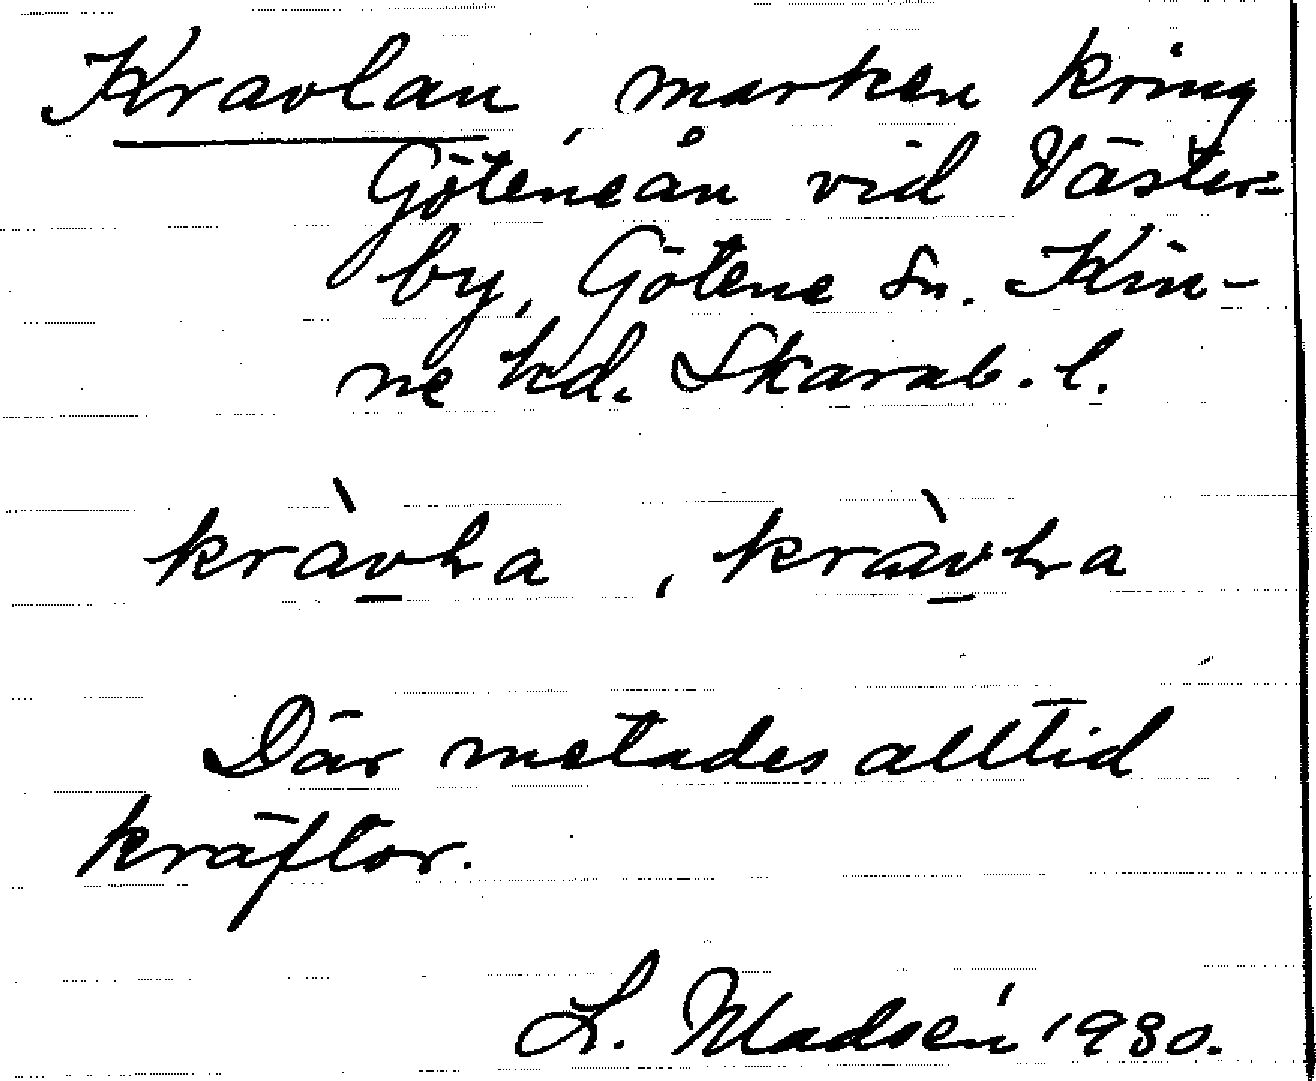 Kravlan, marken kring
Göteneån vid Väster=
by, Götene sn. Kin-
ne hd. Skarab. l.
kràvƚa, kràvƚa
Där metades alltid
kräftor.
L. Madsén 1930.